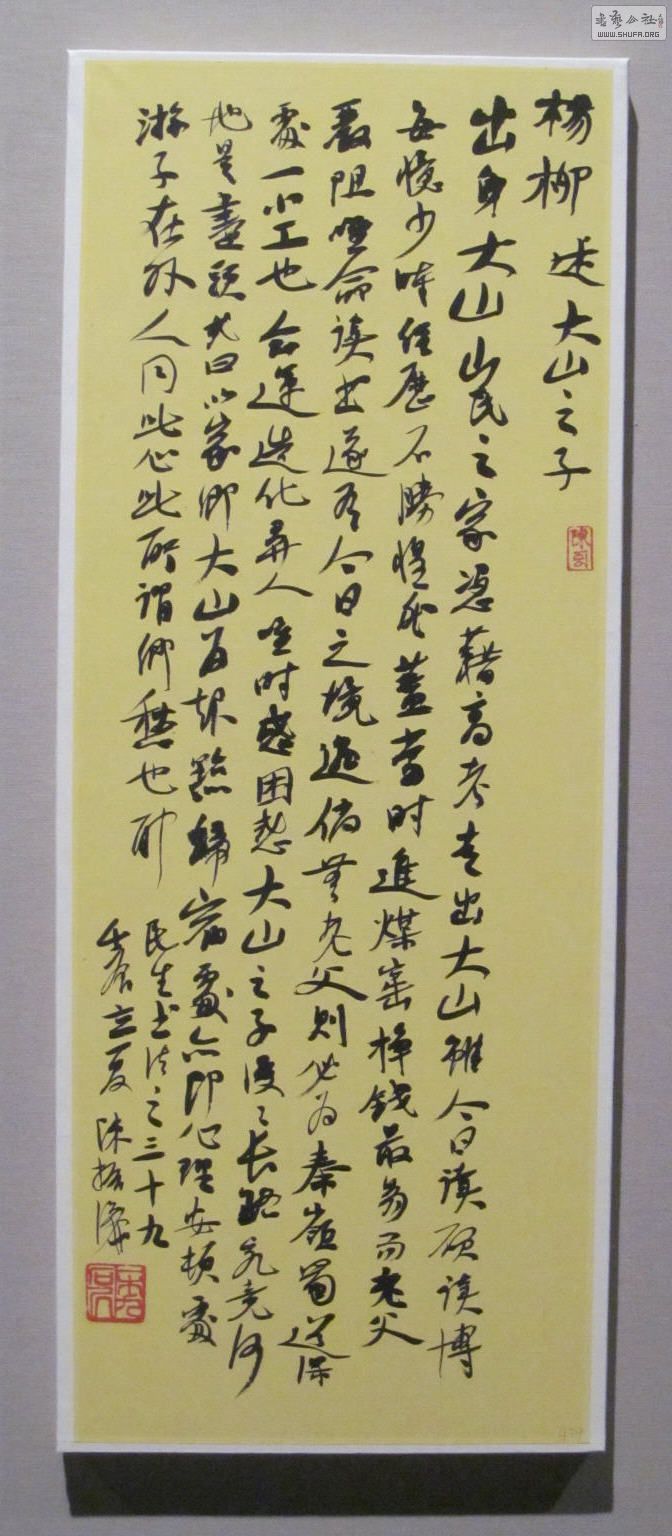 杨柳述大山之子
出身大山山民之家凭藉高考走出大山虽今日读硕读博
每忆少时经历不胜惶恐盖当时进煤窑挣钱最易而老父
严阻唯命读书遂有今日之境遇倘无老父则必为秦岭蜀道深
处一小工也命运造化弄人吾时感困愁大山之子漫之长路究竟何
地是尽头或曰以家乡大山为起点归宿处亦即心理安顿处
游子在外人同此心此所谓乡愁也耶
民生书法之三十九
壬辰立夏陈振濂
書藝公社
WWW.SHUFA.ORG